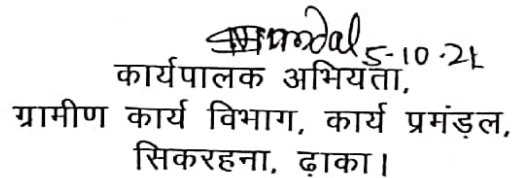 5-10-21
कार्यपालक अभियता,
ग्रामीण कार्य विभाग, कार्य प्रमंड़ल,
सिकरहना, ढ़ाका।